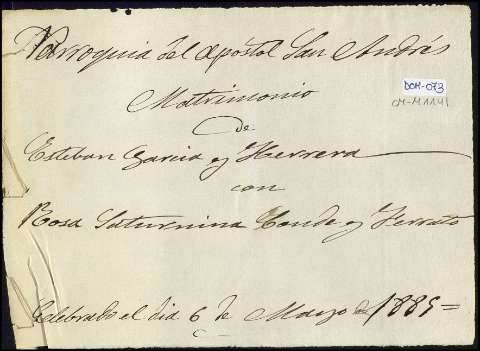 Parroquia del Apóstol San Andrés
DOM-073
CM-M1141
Matrimonio
de
Esteban Garcia y Herrera
con
Rosa Saturnina Conde y Ferrato
Celebrado el dia 6 de Mayo de 1885=